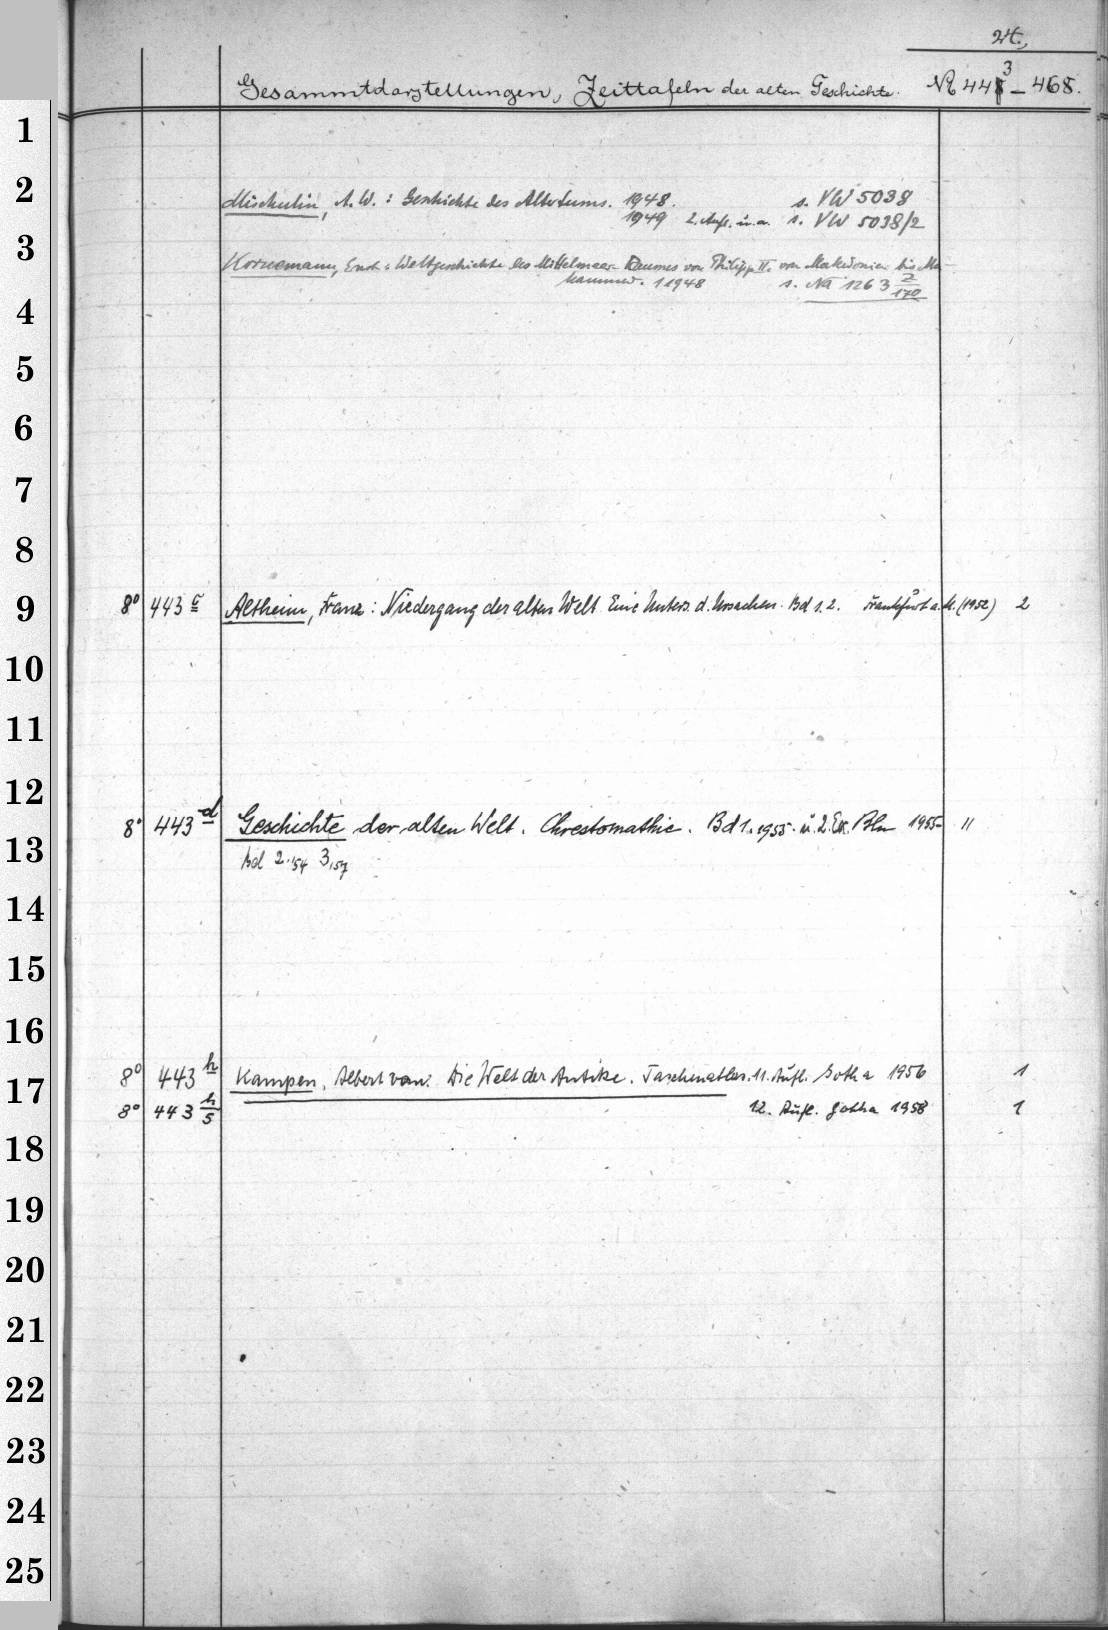 24.
Gesammtdarstellungen, Zeittafeln der alten Geschichte. NR 443 – 468.
1
2
Mischulin, A. W.: Geschichte des Altertums. 1948. s. VW 5038
1949 2. Aufl. u. a. s. VW 5038/2
3
Kornemann, Ernst: Weltgeschichte des Mittelmeer-Raumes von Philipp II. von Makedonien bis Mu-
hammed. 1 1948 s. Na 1263 Z/170
4
5
6
7
8
9
8° 443 c Altheim, Franz: Niedergang der alten Welt. Eine Unters. d. Ursachen. Bd 1.2. Frankfurt a. M. (1952) 2
10
11
12
8° 443 d Geschichte der alten Welt. Chrestomathie. Bd 1. 1955. u. 2. Ex. Bln 1955- 11
13
Bd 2.'54 3,'57
14
15
16
8° 443 h Kampen, Albert van: Die Welt der Antike. Taschenatlas. 11. Aufl. Gotha 1956 1
17
8° 443 h/5 12. Aufl. Gotha 1958 1
18
19
20
21
22
23
24
25